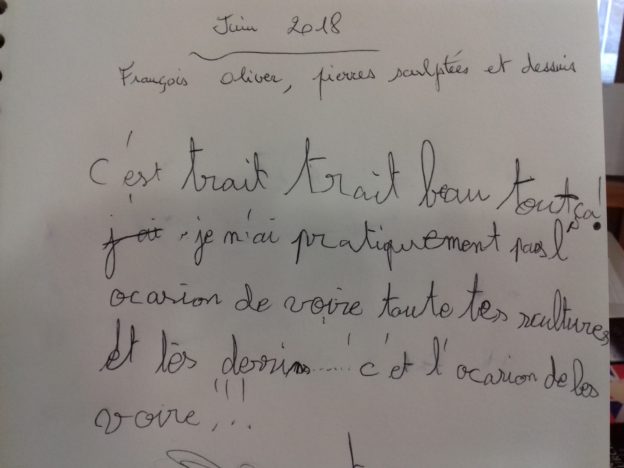 Juin 2018
François Oliver, pierres sculptées et dessins
C'est trait trait beau tout ça!
j'ai je n'ai pratiquement pas l'
ocasion de voire toute tes scultures
et tes dessins...... c'et l'ocasion de les
voire!!!...